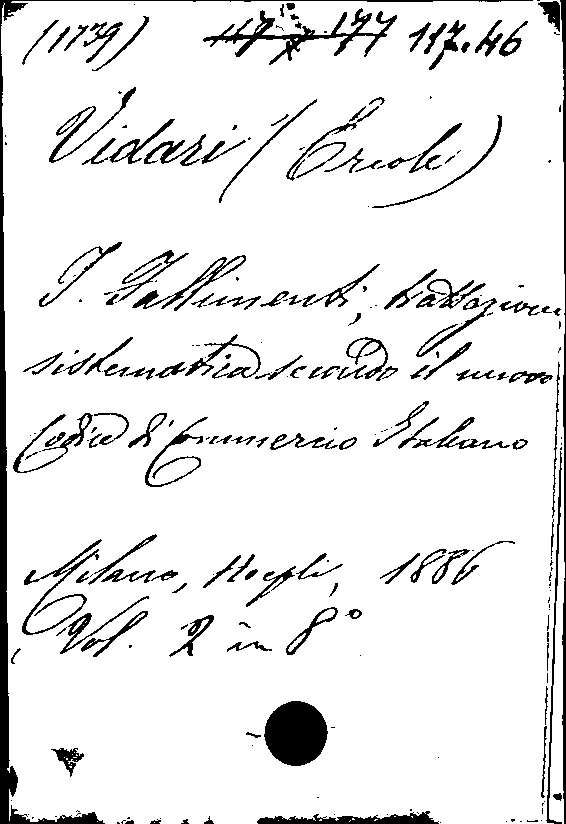 (1739) 117 177 117.46
Vidari (Ercole)
I. Fallimenti, trattazione
sistematica secondo il nuovo
Codice di Commercio Italiano
Milano, Hoepli, 1886
Vol. 2 in 8°